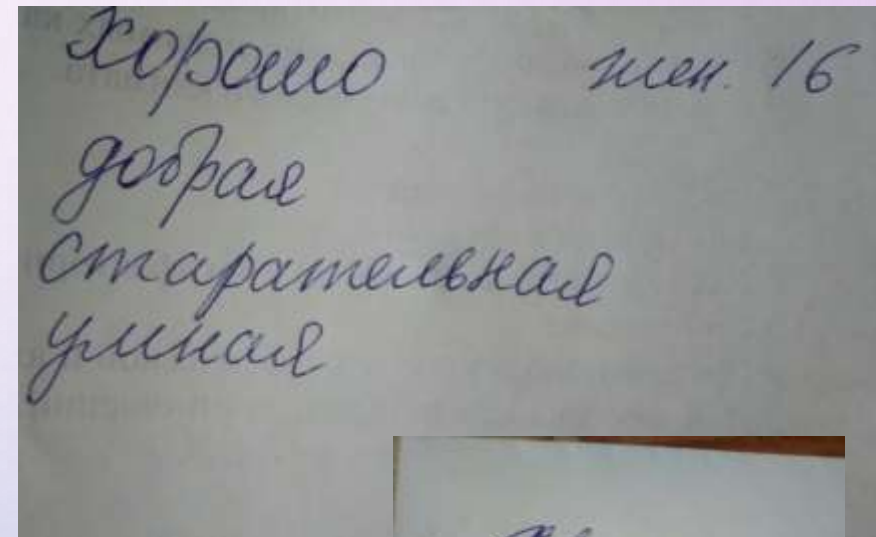 Хорошо жен. 16
добрая
старательная
умная